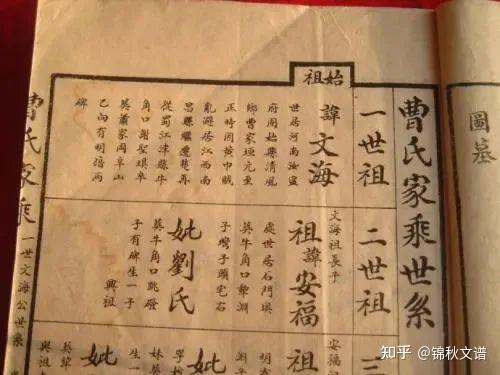 圖墓
曹氏家乘世系
始祖
一世祖
諱文海
世居河南汝寧
府固始縣清風
鄉曹家垣元至
正時因黃巾賊
亂避居江西南
昌縣繼遷楚再
從蜀江津縣牛
角口謝聖琪卒
葬蕭家岡阜山
乙向有明
碑
二世祖
文海祖長子
祖諱安福
處世居石門
葬牛角口犂淵
子灣子頭宅右
妣劉氏
葬牛角口跳磴
子有碑生一子
興祖
三
安福
祖
妣
生一
妣
曹氏家乘
一世文海公世系
知乎 @锦秋文谱